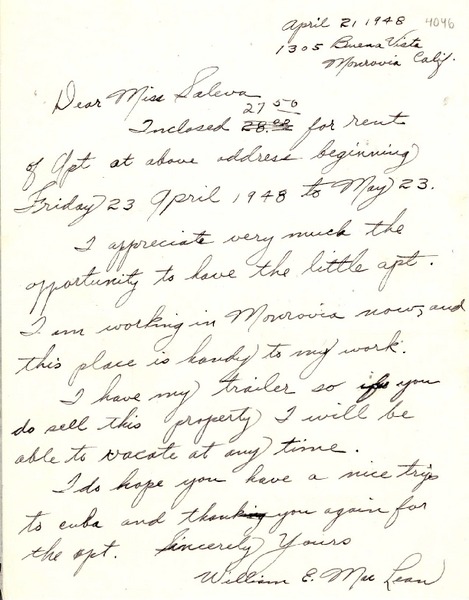 April 21 1948 4046
1305 Buena Vista
Monrovia Calif.
Dear Miss Saleva
27 50
Inclosed 28.00 for rent
of Apt at above address beginning
Friday 23 April 1948 to May 23.
I appreciate very much the
opportunity to have the little apt.
I am working in Monrovia now, and
this place is handy to my work.
I have my trailer so if you
do sell this property I will be
able to vacate at any time.
I do hope you have a nice trip
to cuba and thanking you again for
the apt. Sincerely Yours
William E. Mac Lean